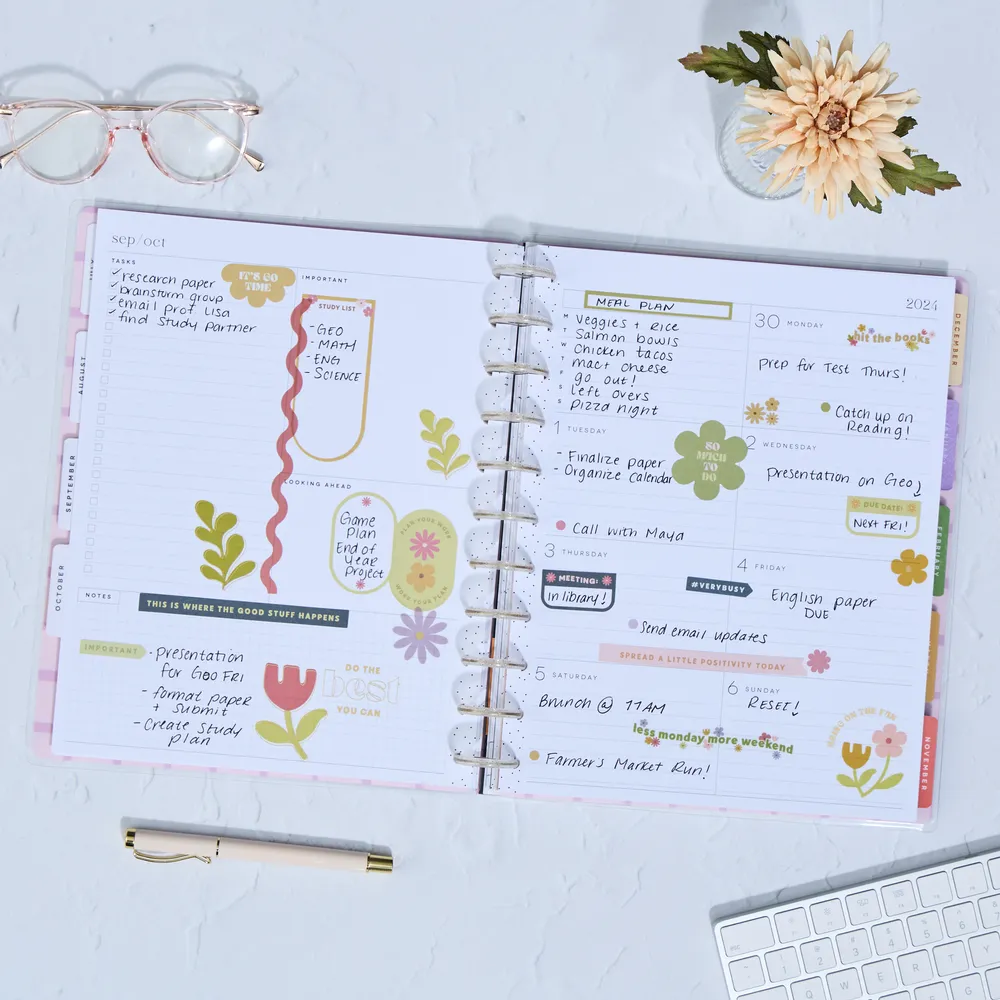 sep/oct
TASKS
research paper
brainstorm group
email prof Lisa
find study partner
IT'S GO
TIME
IMPORTANT
STUDY LIST
- GEO
- MATH
- ENG
- SCIENCE
LOOKING AHEAD
Game
Plan
End of
Year
Project
PLAN YOUR WORK
WORK YOUR PLAN
NOTES
THIS IS WHERE THE GOOD STUFF HAPPENS
IMPORTANT
- Presentation
for Geo FRI
- format paper
+ submit
- Create study
plan
DO THE
best
YOU CAN
AUGUST
SEPTEMBER
OCTOBER
MEAL PLAN
2024
M Veggies + Rice
T Salmon bowls
W Chicken tacos
T mact cheese
F go out!
S left overs
S Pizza night
30 MONDAY
hit the books
Prep for Test Thurs!
Catch up on
Reading!
1 TUESDAY
- Finalize paper
- Organize calendar
SO
MUCH
TO
DO
Call with Maya
2 WEDNESDAY
Presentation on Geo
DUE DATE:
Next FRI!
3 THURSDAY
MEETING:
in library!
4 FRIDAY
#VERYBUSY
English paper
DUE
Send email updates
SPREAD A LITTLE POSITIVITY TODAY
5 SATURDAY
Brunch @ 11AM
less monday more weekend
Farmer's Market Run!
6 SUNDAY
RESET!
BRING ON THE FUN
DECEMBER
FEBRUARY
NOVEMBER
esc
1
2
3
4
5
6
Q
W
E
R
T
Y
G